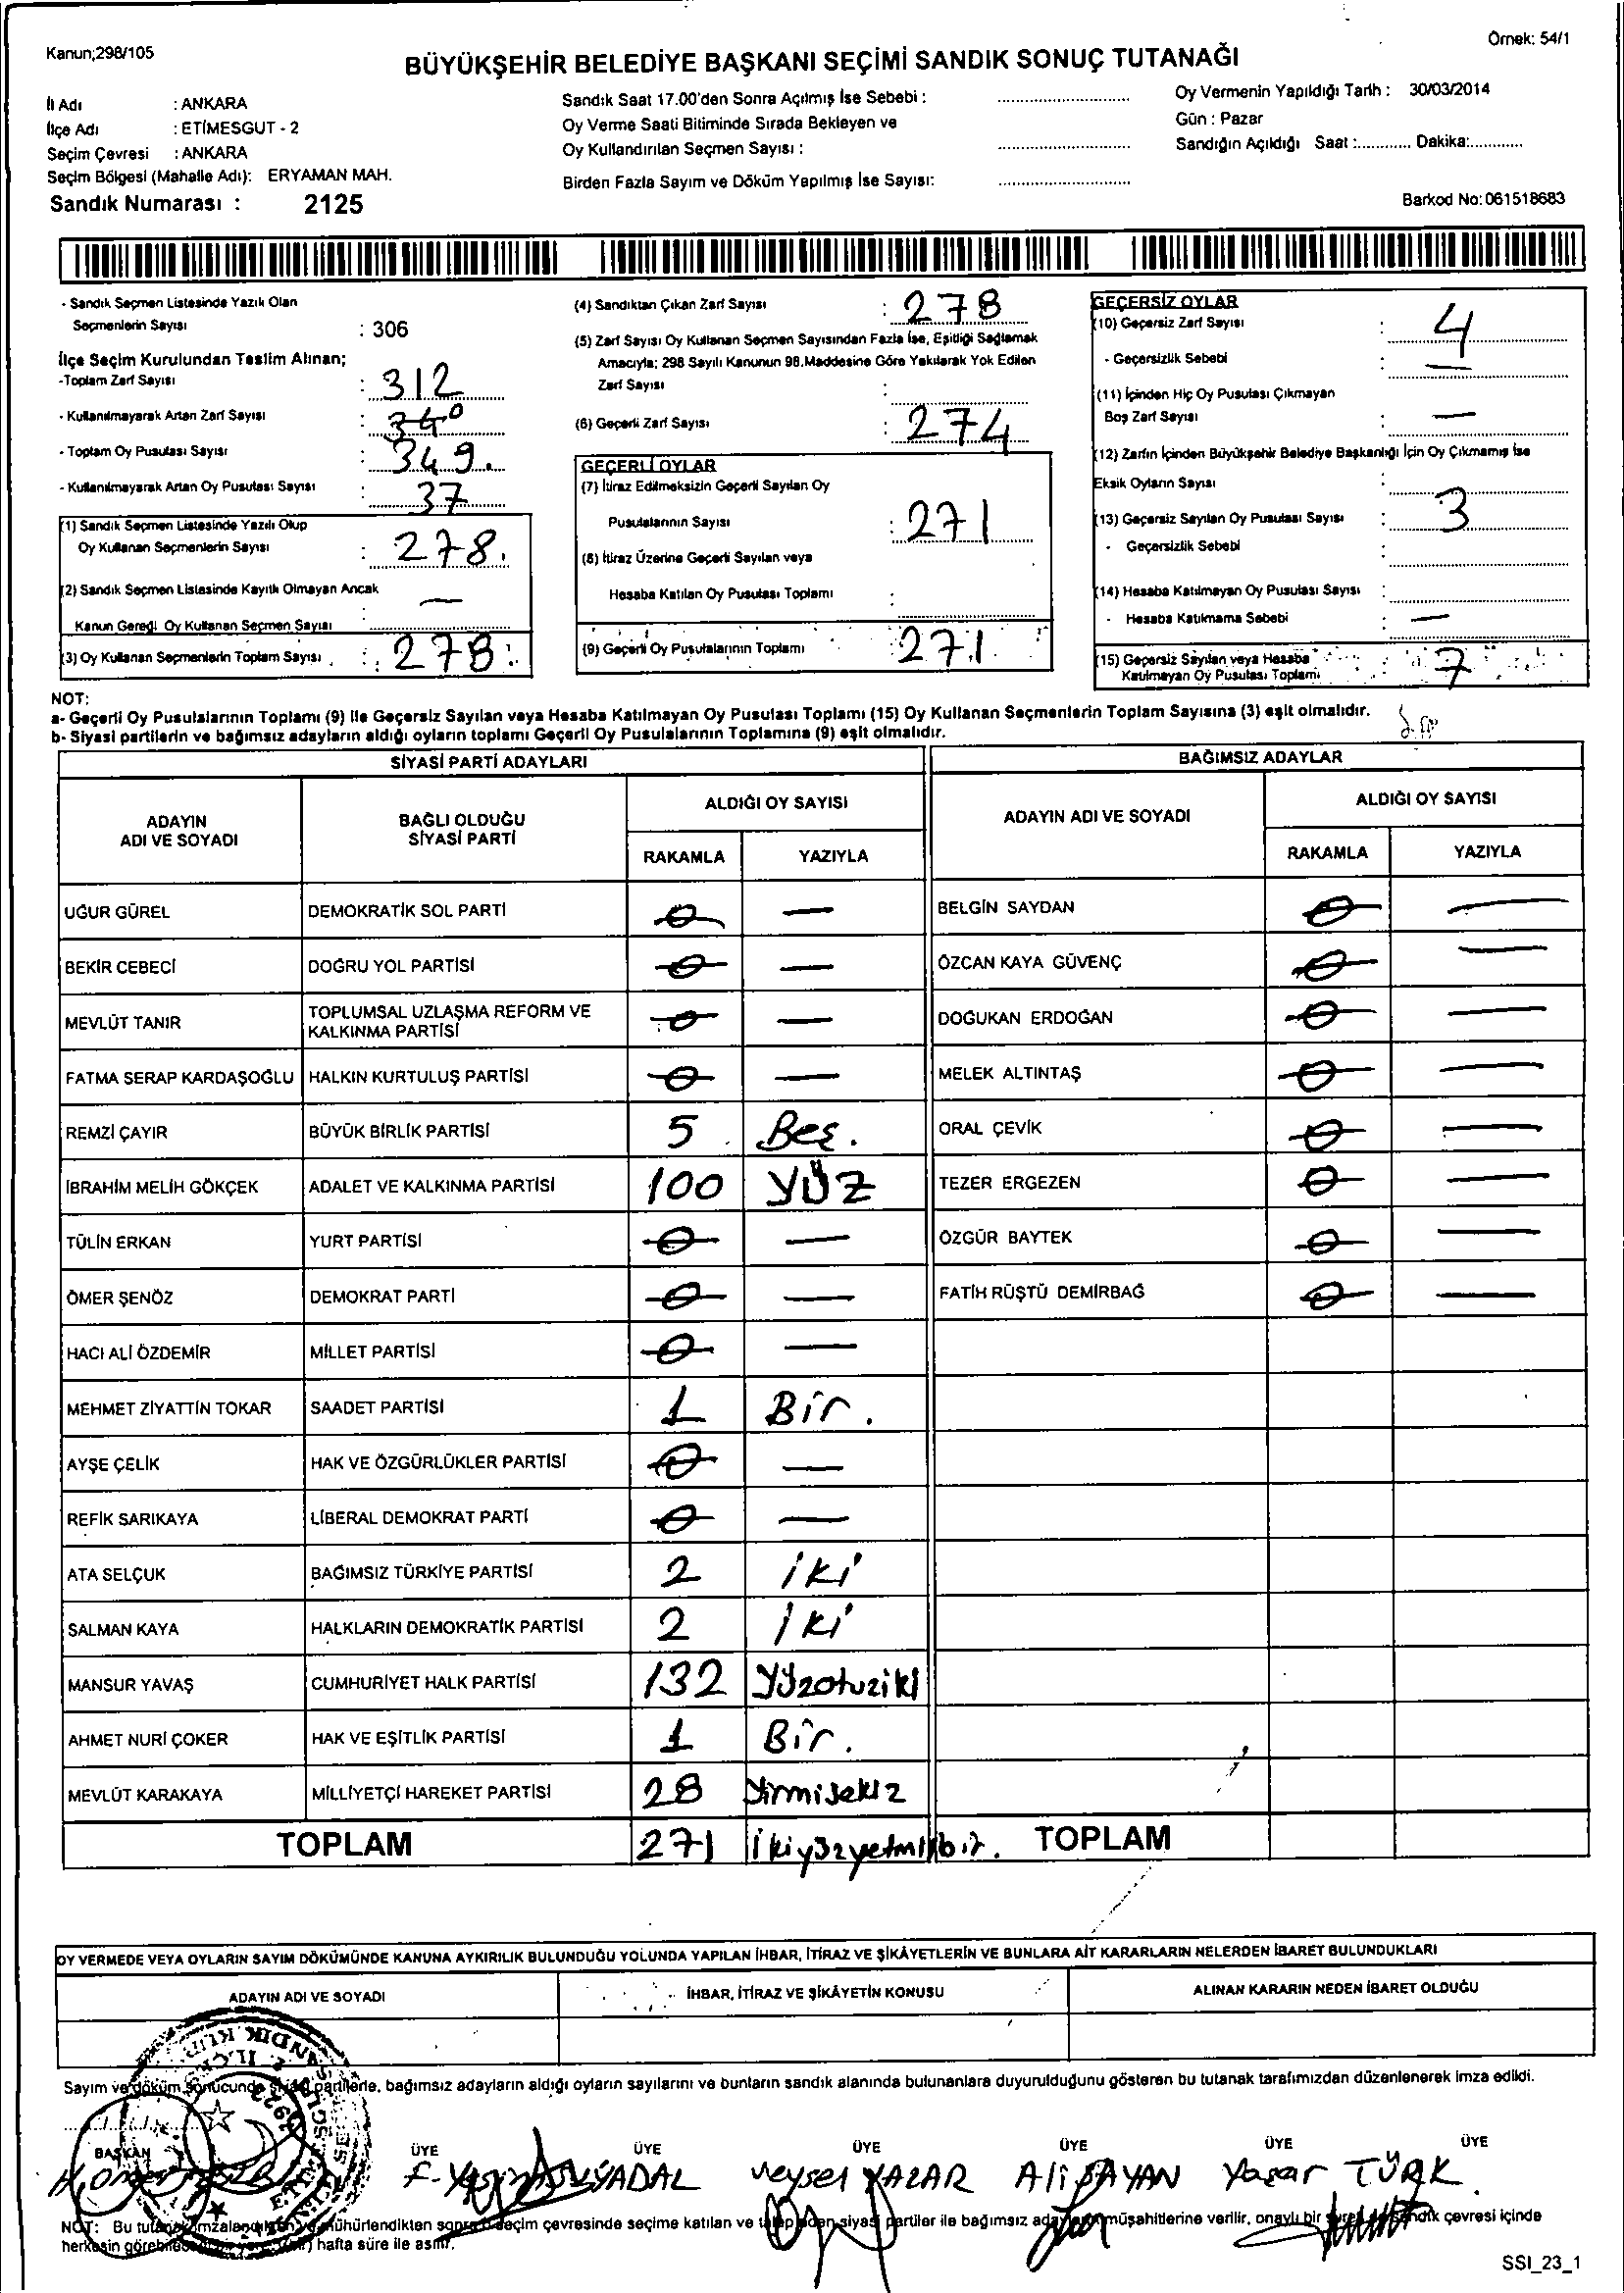 Kanun;298/105
Örnek: 54/1
BÜYÜKŞEHİR BELEDİYE BAŞKANI SEÇİMİ SANDIK SONUÇ TUTANAĞI
İl Adı : ANKARA
İlçe Adı : ETİMESGUT - 2
Seçim Çevresi : ANKARA
Seçim Bölgesi (Mahalle Adı): ERYAMAN MAH.
Sandık Numarası : 2125
Sandık Saat 17.00'den Sonra Açılmış İse Sebebi :
Oy Verme Saati Bitiminde Sırada Bekleyen ve
Oy Kullandırılan Seçmen Sayısı :
Birden Fazla Sayım ve Döküm Yapılmış İse Sayısı:
Oy Vermenin Yapıldığı Tarih : 30/03/2014
Gün : Pazar
Sandığın Açıldığı Saat :............ Dakika:............
Barkod No: 061518683
- Sandık Seçmen Listesinde Yazılı Olan
Seçmenlerin Sayısı : 306
İlçe Seçim Kurulundan Teslim Alınan;
-Toplam Zarf Sayısı : 312
- Kullanılmayarak Artan Zarf Sayısı :
- Toplam Oy Pusulası Sayısı : 349.
- Kullanılmayarak Artan Oy Pusulası Sayısı : 37
(1) Sandık Seçmen Listesinde Yazılı Olup
Oy Kullanan Seçmenlerin Sayısı : 278.
(2) Sandık Seçmen Listesinde Kayıtlı Olmayan Ancak
Kanun Gereği Oy Kullanan Seçmen Sayısı —
(3) Oy Kullanan Seçmenlerin Toplam Sayısı : 278
(4) Sandıktan Çıkan Zarf Sayısı : 278
(5) Zarf Sayısı Oy Kullanan Seçmen Sayısından Fazla İse, Eşitliği Sağlamak
Amacıyla; 298 Sayılı Kanunun 98.Maddesine Göre Yakılarak Yok Edilen
Zarf Sayısı :
(6) Geçerli Zarf Sayısı : 274
GEÇERLİ OYLAR
(7) İtiraz Edilmeksizin Geçerli Sayılan Oy
Pusulalarının Sayısı : 271
(8) İtiraz Üzerine Geçerli Sayılan veya
Hesaba Katılan Oy Pusulası Toplamı :
(9) Geçerli Oy Pusulalarının Toplamı : 271
GEÇERSİZ OYLAR
(10) Geçersiz Zarf Sayısı : 4
- Geçersizlik Sebebi : —
(11) İçinden Hiç Oy Pusulası Çıkmayan
Boş Zarf Sayısı : —
(12) Zarfın İçinden Büyükşehir Belediye Başkanlığı İçin Oy Çıkmamış İse
Eksik Oyların Sayısı :
(13) Geçersiz Sayılan Oy Pusulası Sayısı : 3
- Geçersizlik Sebebi :
(14) Hesaba Katılmayan Oy Pusulası Sayısı :
- Hesaba Katılmama Sebebi : —
(15) Geçersiz Sayılan veya Hesaba
Katılmayan Oy Pusulası Toplamı : 7
NOT:
a- Geçerli Oy Pusulalarının Toplamı (9) ile Geçersiz Sayılan veya Hesaba Katılmayan Oy Pusulası Toplamı (15) Oy Kullanan Seçmenlerin Toplam Sayısına (3) eşit olmalıdır.
b- Siyasi partilerin ve bağımsız adayların aldığı oyların toplamı Geçerli Oy Pusulalarının Toplamına (9) eşit olmalıdır.
SİYASİ PARTİ ADAYLARI
BAĞIMSIZ ADAYLAR
ADAYIN ADI VE SOYADI
BAĞLI OLDUĞU SİYASİ PARTİ
ALDIĞI OY SAYISI
RAKAMLA YAZIYLA
ADAYIN ADI VE SOYADI
ALDIĞI OY SAYISI
RAKAMLA YAZIYLA
UĞUR GÜREL DEMOKRATİK SOL PARTİ 0 — BELGİN SAYDAN 0 —
BEKİR CEBECİ DOĞRU YOL PARTİSİ 0 — ÖZCAN KAYA GÜVENÇ 0 —
MEVLÜT TANIR TOPLUMSAL UZLAŞMA REFORM VE KALKINMA PARTİSİ 0 — DOĞUKAN ERDOĞAN 0 —
FATMA SERAP KARDAŞOĞLU HALKIN KURTULUŞ PARTİSİ 0 — MELEK ALTINTAŞ 0 —
REMZİ ÇAYIR BÜYÜK BİRLİK PARTİSİ 5 Beş. ORAL ÇEVİK 0 —
İBRAHİM MELİH GÖKÇEK ADALET VE KALKINMA PARTİSİ 100 YÜZ TEZER ERGEZEN 0 —
TÜLİN ERKAN YURT PARTİSİ 0 — ÖZGÜR BAYTEK 0 —
ÖMER ŞENÖZ DEMOKRAT PARTİ 0 — FATİH RÜŞTÜ DEMİRBAĞ 0 —
HACI ALİ ÖZDEMİR MİLLET PARTİSİ 0 —
MEHMET ZİYATTİN TOKAR SAADET PARTİSİ 1 Bir.
AYŞE ÇELİK HAK VE ÖZGÜRLÜKLER PARTİSİ 0 —
REFİK SARIKAYA LİBERAL DEMOKRAT PARTİ 0 —
ATA SELÇUK BAĞIMSIZ TÜRKİYE PARTİSİ 2 iki
SALMAN KAYA HALKLARIN DEMOKRATİK PARTİSİ 2 iki
MANSUR YAVAŞ CUMHURİYET HALK PARTİSİ 132 Yüzotuziki
AHMET NURİ ÇOKER HAK VE EŞİTLİK PARTİSİ 1 Bir.
MEVLÜT KARAKAYA MİLLİYETÇİ HAREKET PARTİSİ 28 Yirmisekiz
TOPLAM 271 ikiyüzyetmişbir. TOPLAM
OY VERMEDE VEYA OYLARIN SAYIM DÖKÜMÜNDE KANUNA AYKIRILIK BULUNDUĞU YOLUNDA YAPILAN İHBAR, İTİRAZ VE ŞİKÂYETLERİN VE BUNLARA AİT KARARLARIN NELERDEN İBARET BULUNDUKLARI
ADAYIN ADI VE SOYADI İHBAR, İTİRAZ VE ŞİKÂYETİN KONUSU ALINAN KARARIN NEDEN İBARET OLDUĞU
Sayım ve döküm sonucunda siyasi partilerle, bağımsız adayların aldığı oyların sayılarını ve bunların sandık alanında bulunanlara duyurulduğunu gösteren bu tutanak tarafımızdan düzenlenerek imza edildi.
BAŞKAN ÜYE ÜYE ÜYE ÜYE ÜYE ÜYE
Veysel YAZAR Ali BAYAN Yaşar TÜRK
NOT: Bu tutanak imzalandıktan ve mühürlendikten sonra seçim çevresinde seçime katılan ve talep eden siyasi partiler ile bağımsız aday müşahitlerine verilir, onaylı bir sureti sandık çevresi içinde
herkesin görebileceği bir yere (bir) hafta süre ile asılır.
SSI_23_1